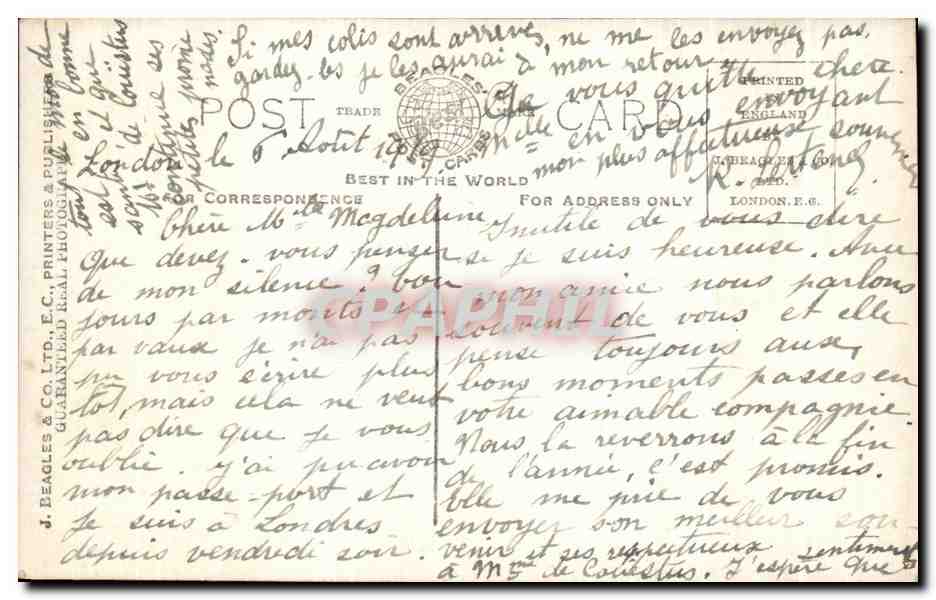 Si mes colis sont arrivés, ne me les envoyez pas,
gardez-les je les aurai à mon retour.
Je vous quitte chère
Mlle en vous envoyant
mon plus affectueux souvenir
POST CARD
TRADE MARK
BEAGLES'
POST CARDS
BEST IN THE WORLD
PRINTED
IN
ENGLAND
J. BEAGLES & CO.
LTD.
LONDON, E.C.
FOR CORRESPONDENCE
FOR ADDRESS ONLY
J. BEAGLES & CO. LTD., E.C., PRINTERS & PUBLISHERS
GUARANTEED REAL PHOTOGRAPH
Londres le 6 Août
Chère Mlle Magdeleine
Que devez-vous penser
de mon silence? Tou
jours par monts et
par vaux je n'ai pas
pu vous écrire plus
tôt, mais cela ne veut
pas dire que je vous
oublie. J'ai pu avoir
mon passe-port et
je suis à Londres
depuis vendredi soir.
Inutile de vous dire
si je suis heureuse. Avec
mon amie nous parlons
souvent de vous et elle
pense toujours aux
bons moments passés en
votre aimable compagnie
Nous la reverrons à la fin
de l'année, c'est promis.
Elle me prie de vous
envoyer son meilleur sou-
venir et ses respectueux sentiments
à Mme de Coüestus. J'espère que
tout le monde
est en bonne
santé et que
Mr de Coüestus
continue ses
petites prome
nades.
CPAPHIL